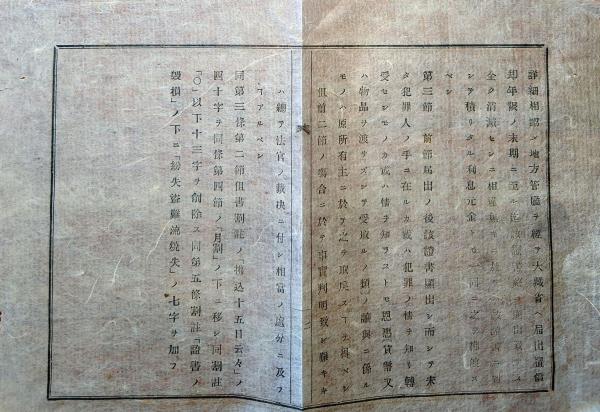 詳細相認メ地方管廳ヲ經テ大藏省ヘ屆出證書
却年限ノ末期ニ至ル
全ク消滅セシニ相違
シテ積リタル利息元金
ベシ
第三節 前節屆出ノ後該證書顯出シ而シテ未
タ犯罪人ノ手ニ在ルカ或ハ犯罪ノ情ヲ知リ轉
受セシモノカ或ハ情ヲ知ラストモ恩惠貨幣又
ハ物品ヲ渡サズシテ受取ルノ類ノ讓與ニ係ル
モノハ原所有主ニ於テ之ヲ取戾スヿヲ得ベシ
但前二節ノ塲合ニ於テ事實判明致シ難キキ
ハ總テ法官ノ裁決ニ付シ相當ノ處分ニ及フ
ヿアルベシ
同第三條第二節但書割註ノ「拂込十五日云々」ノ
四十字ヲ同條第四節ノ「月割」ノ下ニ移シ同割註
「〇」以下十三字ヲ削除ス同第五條割註「證書ノ
毀損」ノ下ニ「紛失盜難流燒失」ノ七字ヲ加フ